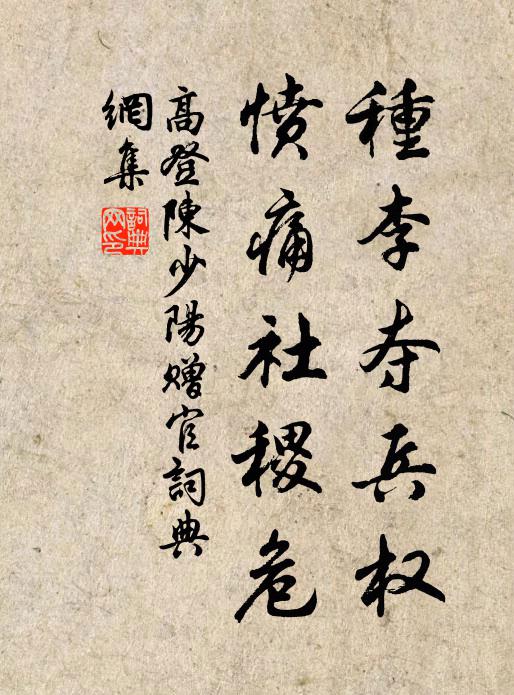 種李夺兵权
憤痛社稷危
高登陳少陽赠官詞典
網集
詞典網印